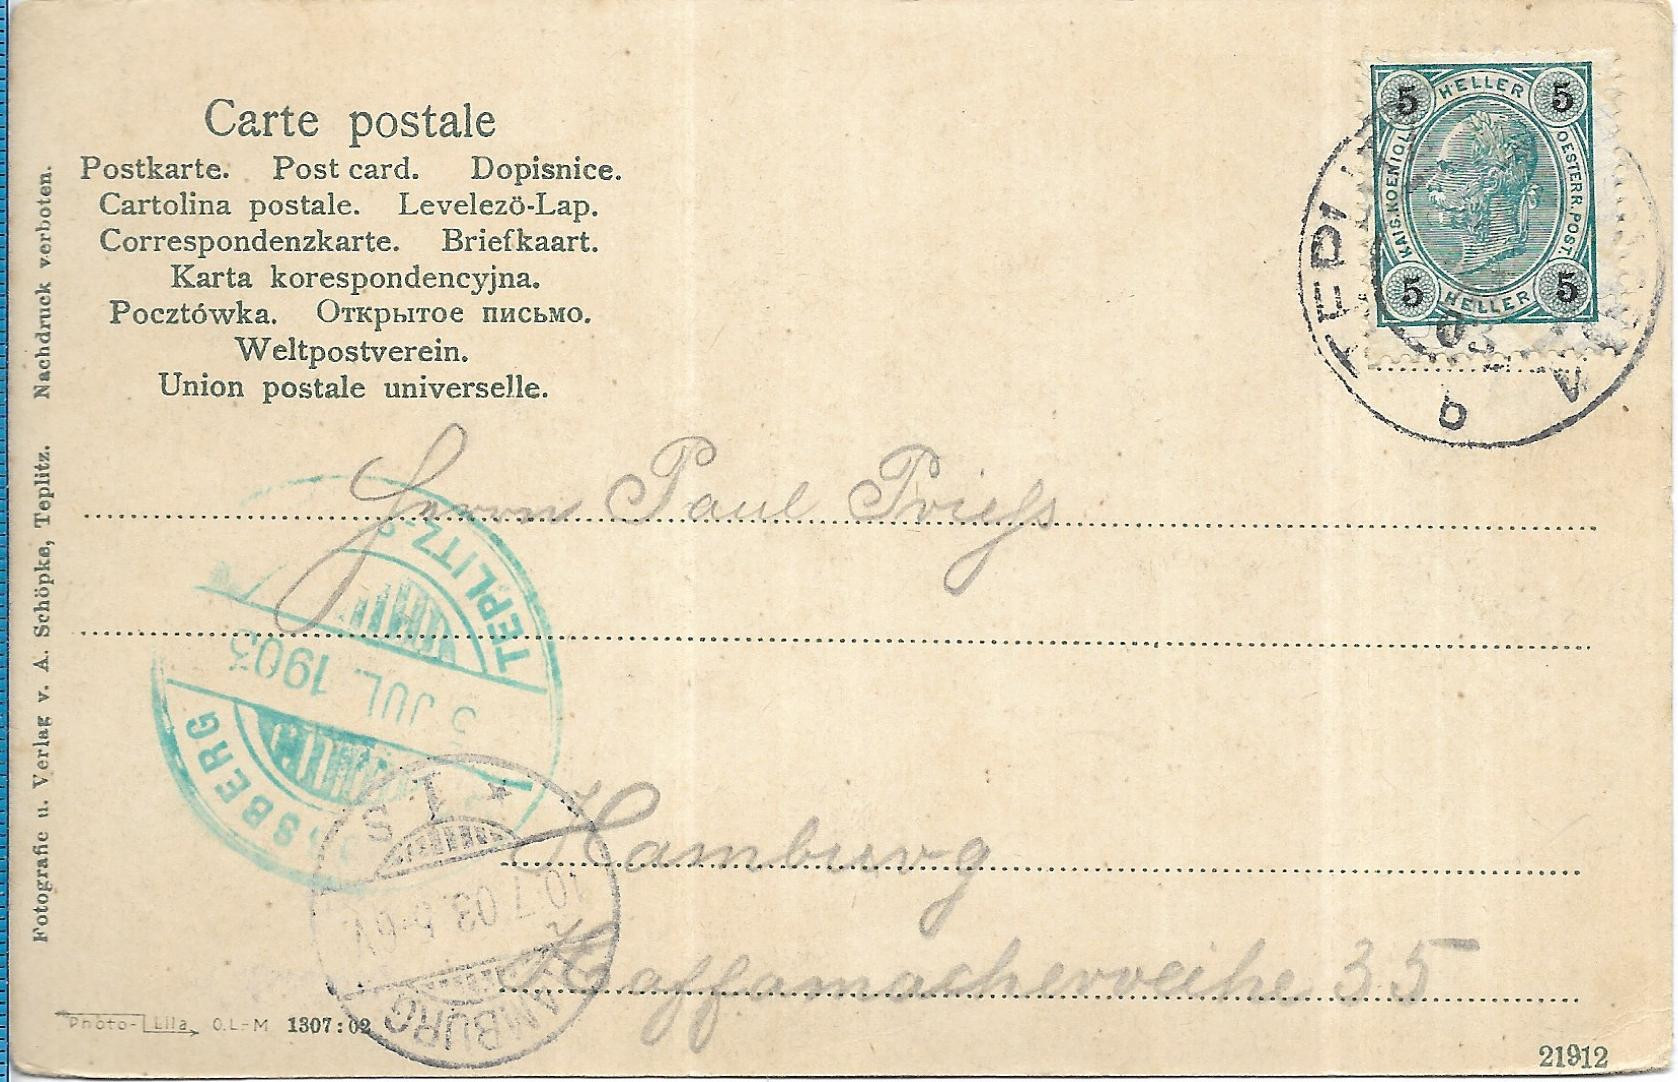 Carte postale
Postkarte. Post card. Dopisnice.
Cartolina postale. Levelezö-Lap.
Correspondenzkarte. Briefkaart.
Karta korespondencyjna.
Pocztówka. Открытое письмо.
Weltpostverein.
Union postale universelle.
5 HELLER 5
KAIS. KOENIGL. OESTERR. POST.
5 HELLER 5
TEPL
b
Herrn Paul Priess
TEPLITZ-S
JUL. 1903
SBERG
Hamburg
Kaffamacherreihe 35
* 1 S
10.7.03.
HAMBURG
Fotografie u. Verlag v. A. Schöpke, Teplitz. Nachdruck verboten.
Photo-Lila O.L.-M 1307:02
21912